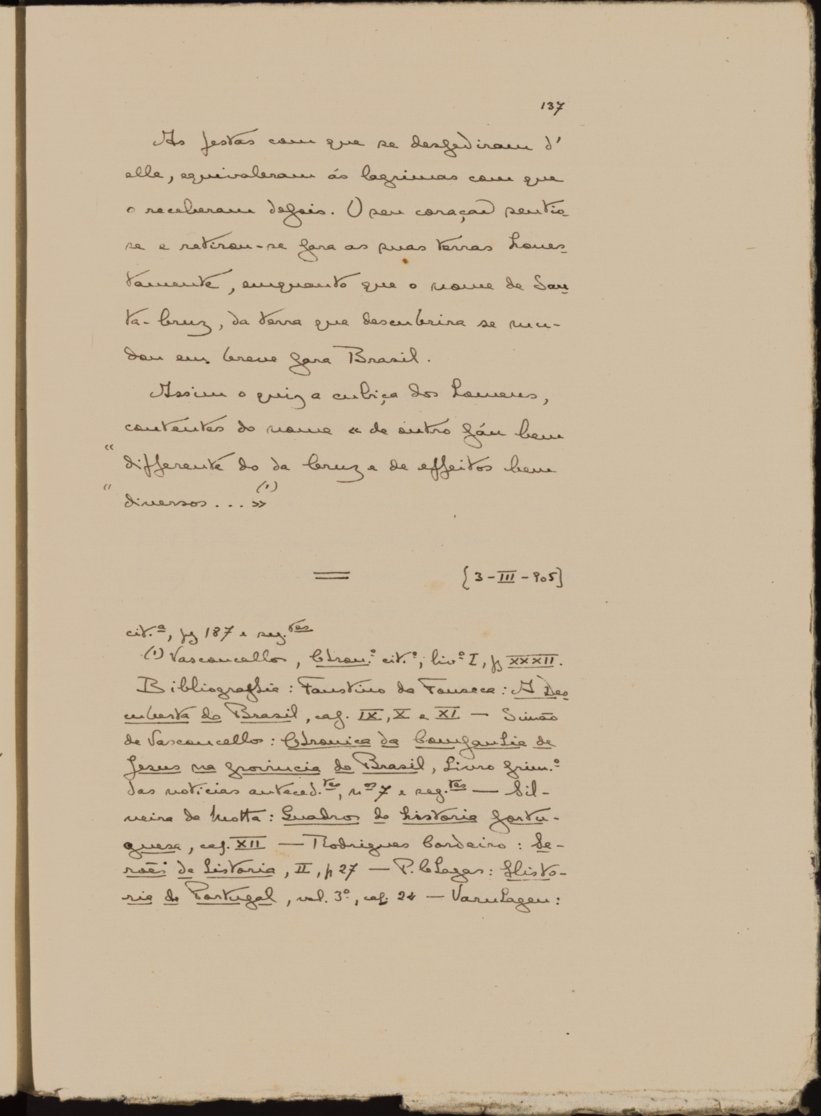 137
As festas com que se despediram d'
elle, equivaleram ás lagrimas com que
o receberam depois. O seu coração sentiu-
se e retirou-se para as suas terras hones-
tamente, emquanto que o nome de San-
ta-Cruz, da terra que descubrira se mu-
dou em breve para Brasil.
Assim o quiz a cubiça dos homens,
contentes do nome « de outro páu bem
" differente do da Cruz e de effeitos bem
" diversos... » (1)
[3-III-905]
cit.ª, pg 187 e seg.tes
(1) Vasconcellos, Chron.ª cit.ª, liv.º I, pg XXXII.
Bibliographia: Faustino da Fonseca: A Des-
cuberta do Brasil, cap. IX, X e XI — Simão
de Vasconcellos: Chronica da Companhia de
Jesus na provincia do Brasil, Livro prim.º
das noticias anteced.tes, nos 7 e seg.tes — Sil-
veira da Motta: Quadros de historia portu-
guesa, cap. XII — Rodrigues Cordeiro: Se-
rões de historia, II, p 27 — P. Chagas: Histo-
ria de Portugal, vol. 3º, cap. 24 — Varnhagen: